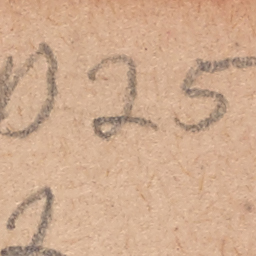 D 25
2